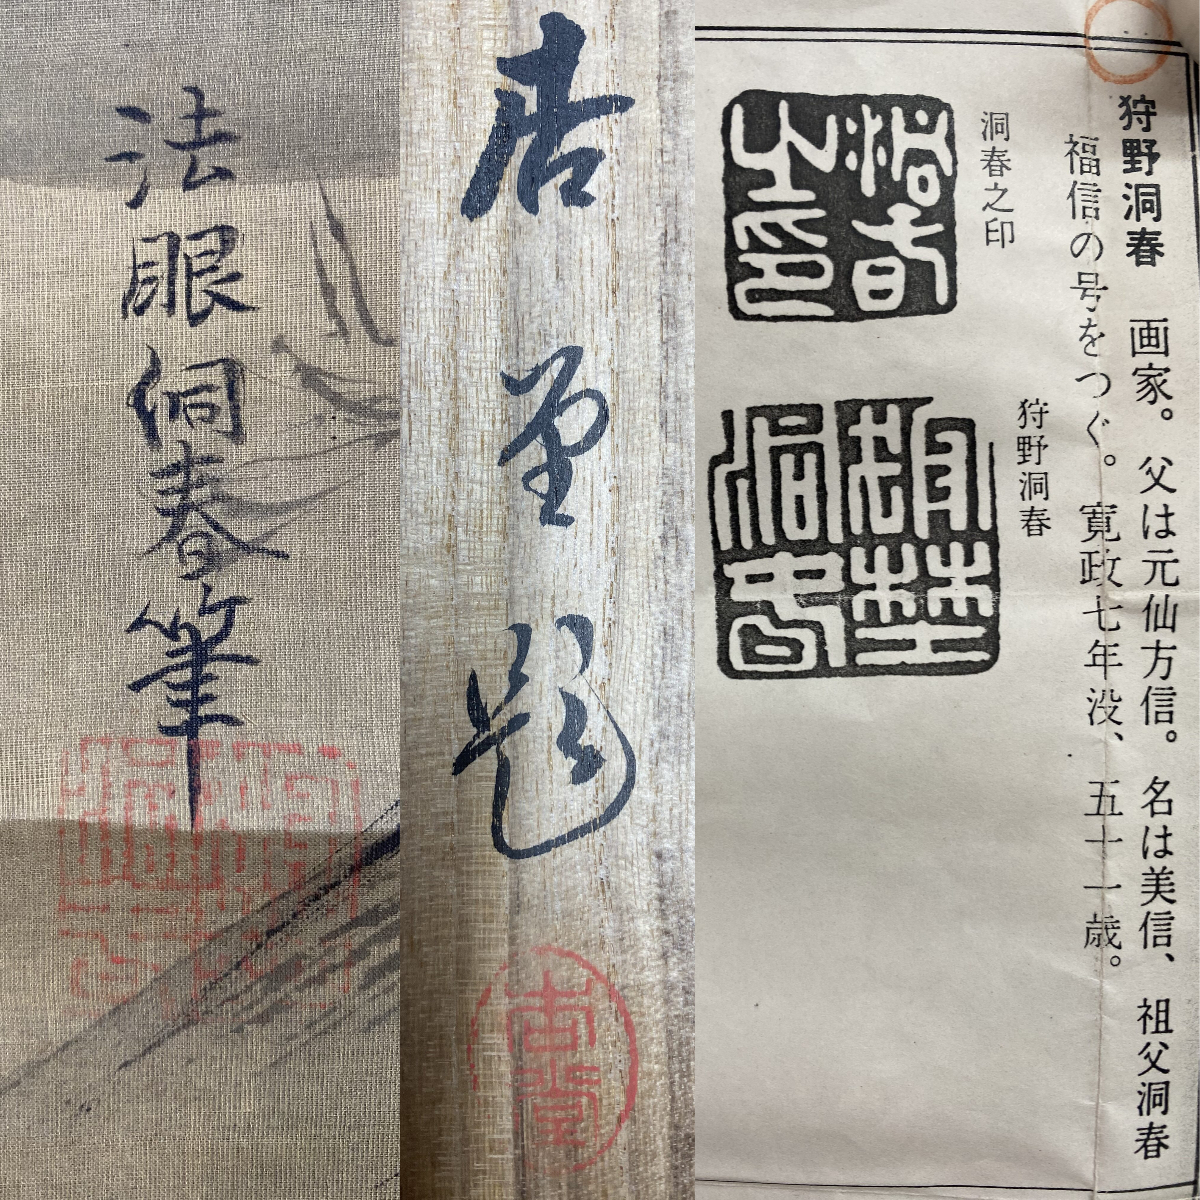 法眼洞春筆
堂題
狩野洞春 画家。父は元仙方信。名は美信、祖父洞春
福信の号をつぐ。寛政七年没、五十一歳。
洞春之印
洞春之印
狩野洞春
狩野洞春